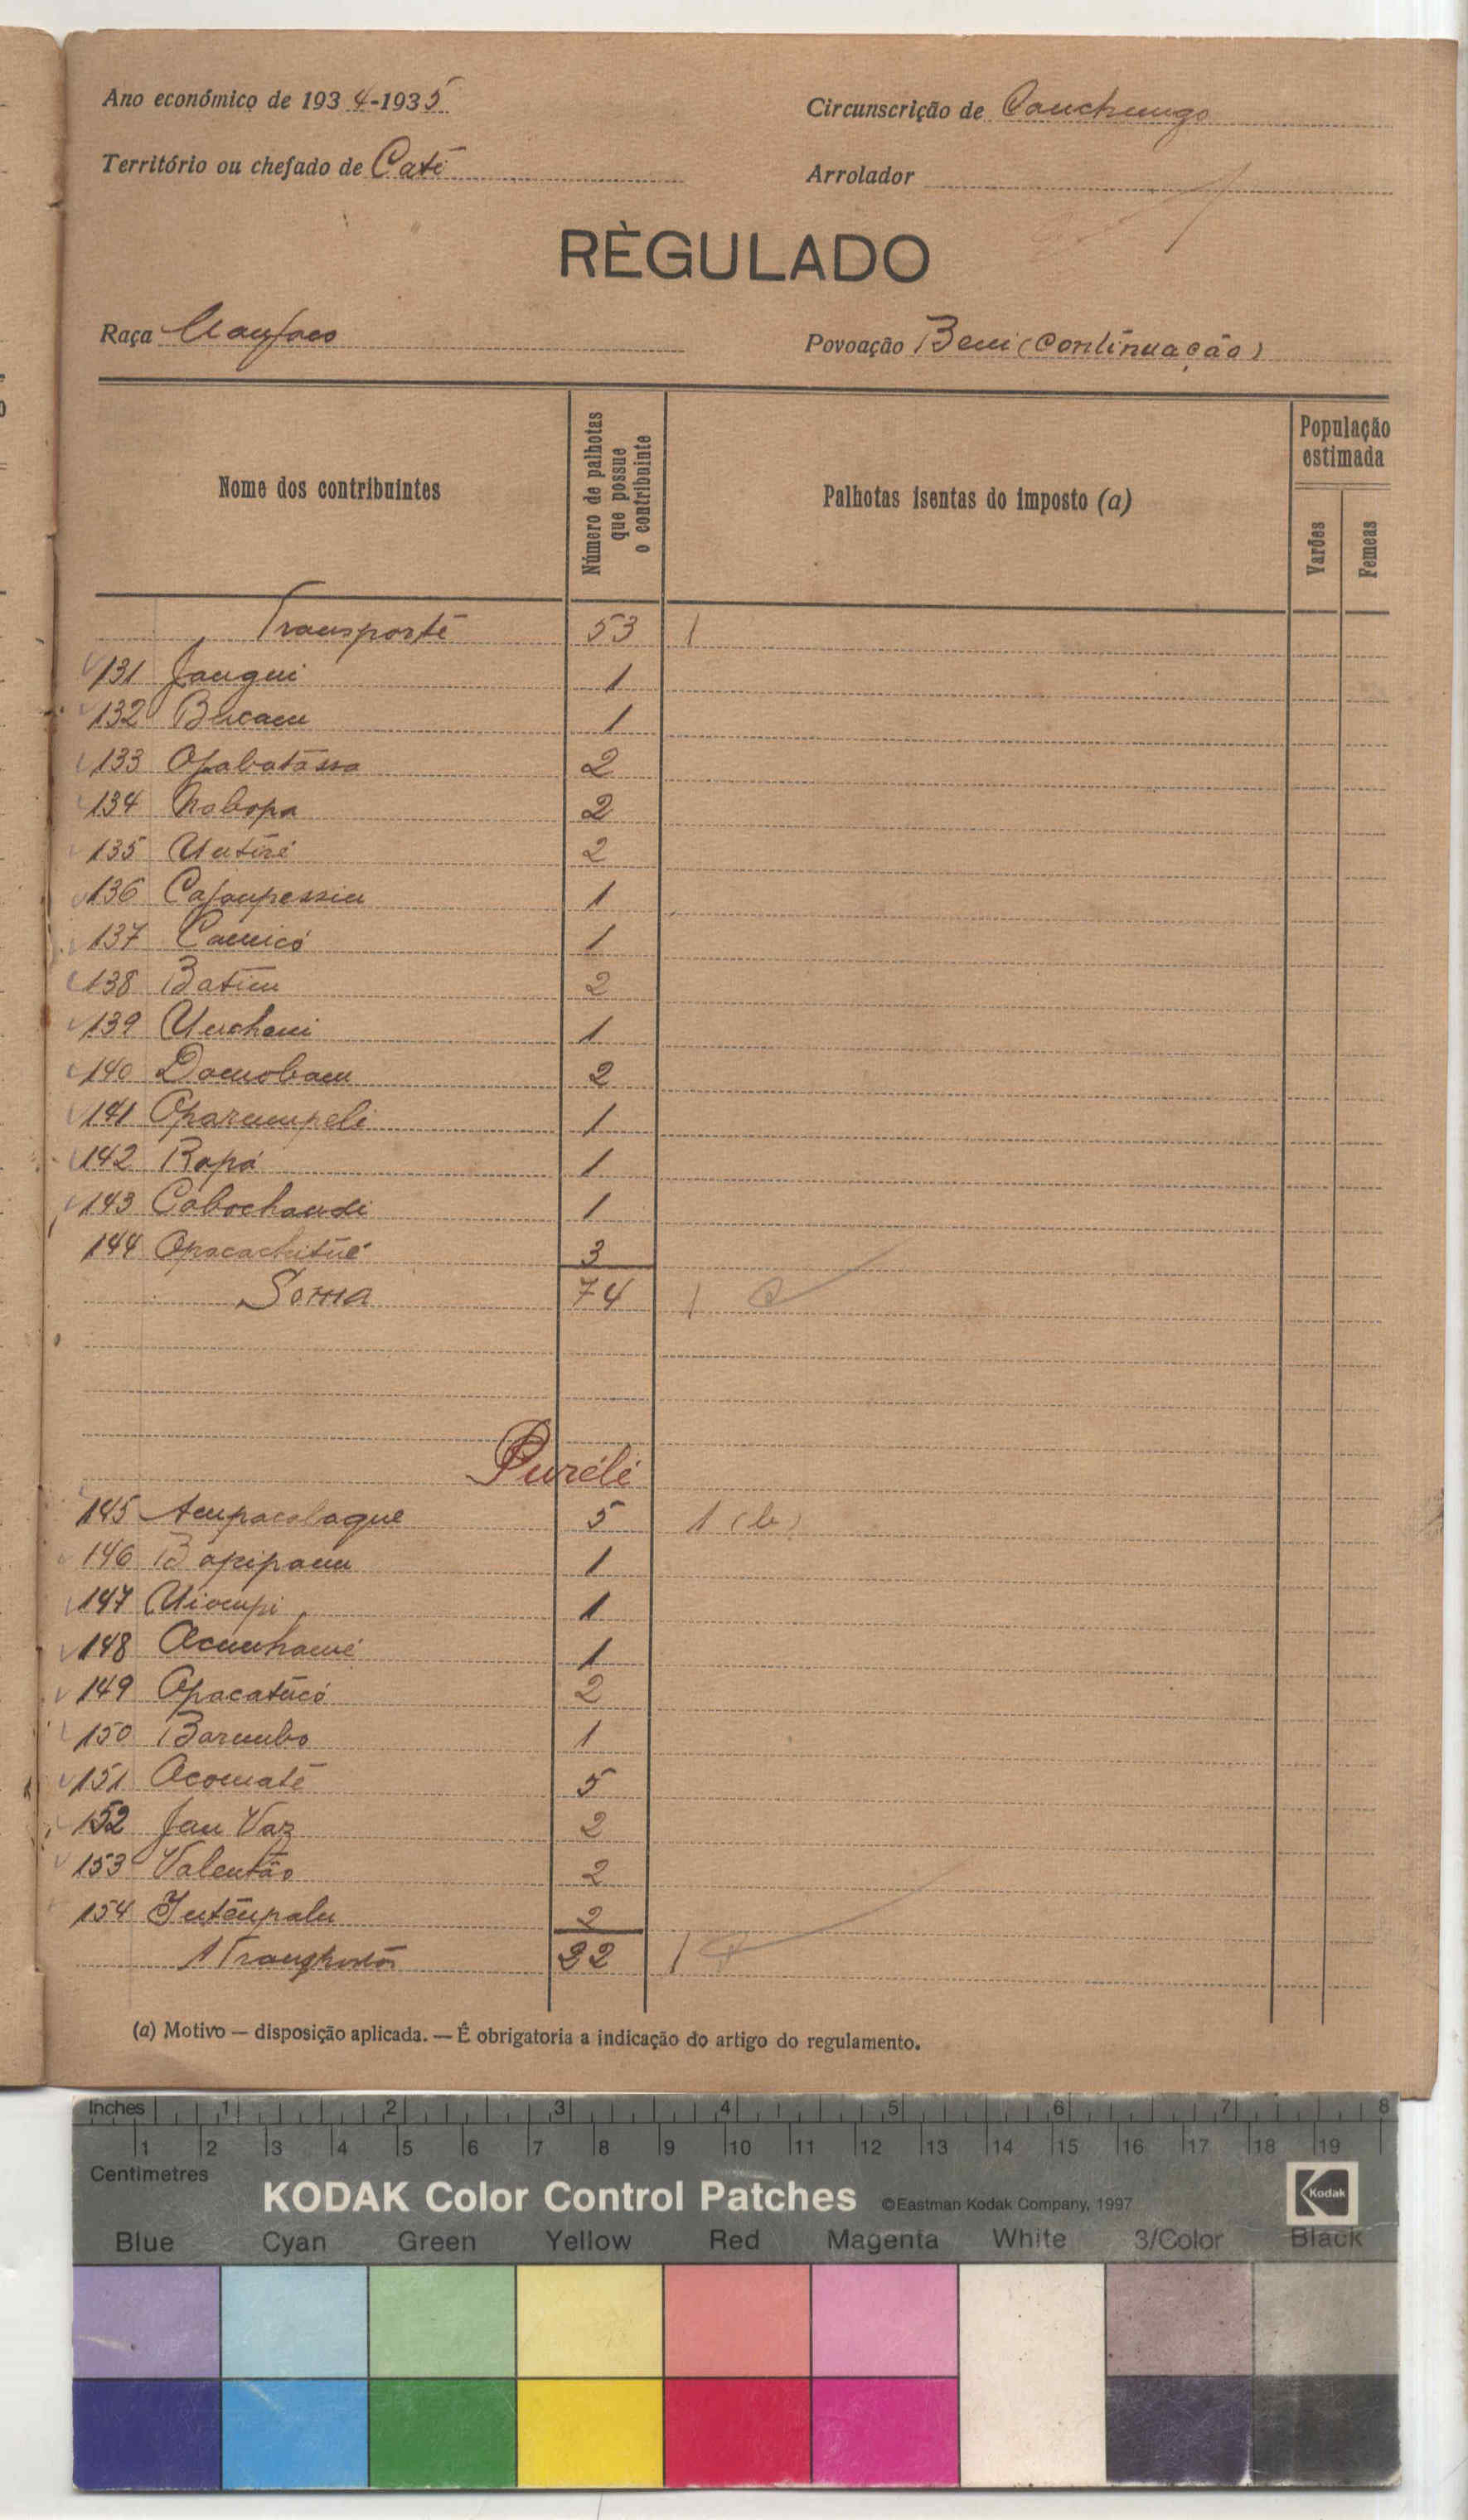 Ano económico de 1934-1935
Circunscrição de Canchungo
Território ou chefado de Cati
Arrolador
RÈGULADO
Raça Manjaco
Povoação Beni (Continuação)
Nome dos contribuintes
Número de palhotas que possue o contribuinte
Palhotas isentas do imposto (a)
População estimada
Varões
Femeas
Transporte 53 1
131 Jangui 1
132 Bucam 1
133 Ofabatassa 2
134 Nabopa 2
135 Untiré 2
136 Cajanpessiu 1
137 Camicó 1
138 Batim 2
139 Unchami 1
140 Damobam 2
141 Oparumpeli 1
142 Rapá 1
143 Cabochandi 1
144 Opacachitué 3
Soma 74 1
Purélé
145 Aupacalaque 5 1 (b)
146 Bapipam 1
147 Uiompi 1
148 Acumhamé 1
149 Apacatucó 2
150 Barumbo 1
151 Acomaté 5
152 Jan Vaz 2
153 Valentão 2
154 Intenpalu 2
Transporte 22 1
(a) Motivo — disposição aplicada. — É obrigatoria a indicação do artigo do regulamento.
Inches 1 2 3 4 5 6 7 8
1 2 3 4 5 6 7 8 9 10 11 12 13 14 15 16 17 18 19
Centimetres
KODAK Color Control Patches ©Eastman Kodak Company, 1997 Kodak
Blue Cyan Green Yellow Red Magenta White 3/Color Black